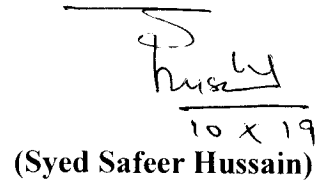 10 x 19
(Syed Safeer Hussain)